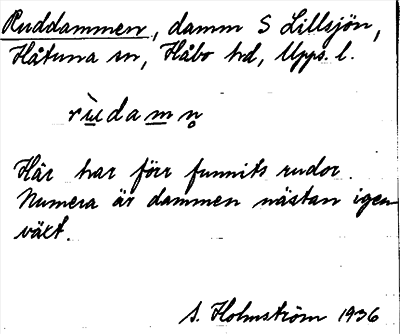 Ruddammen, damm S Lillsjön,
Håtuna sn, Håbo hd, Upps. l.
rùdamn̥
Här har förr funnits rudor.
Numera är dammen nästan igen-
växt.
S. Holmström 1936